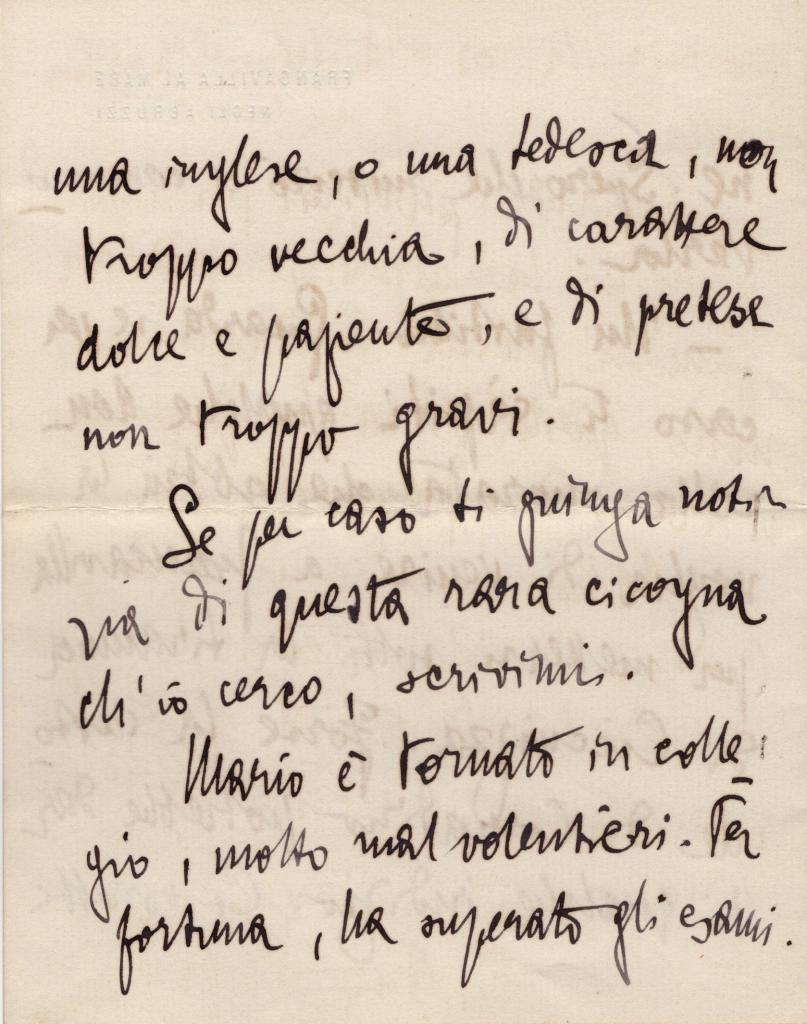 una inglese, o una tedesca, non
troppo vecchia, di carattere
dolce e paziente, e di pretese
non troppo gravi.
Se per caso ti giunga noti-
zia di questa rara cicogna
ch'io cerco, scrivimi.
Mario è tornato in colle-
gio, molto mal volentieri. Per
fortuna, ha superato gli esami.